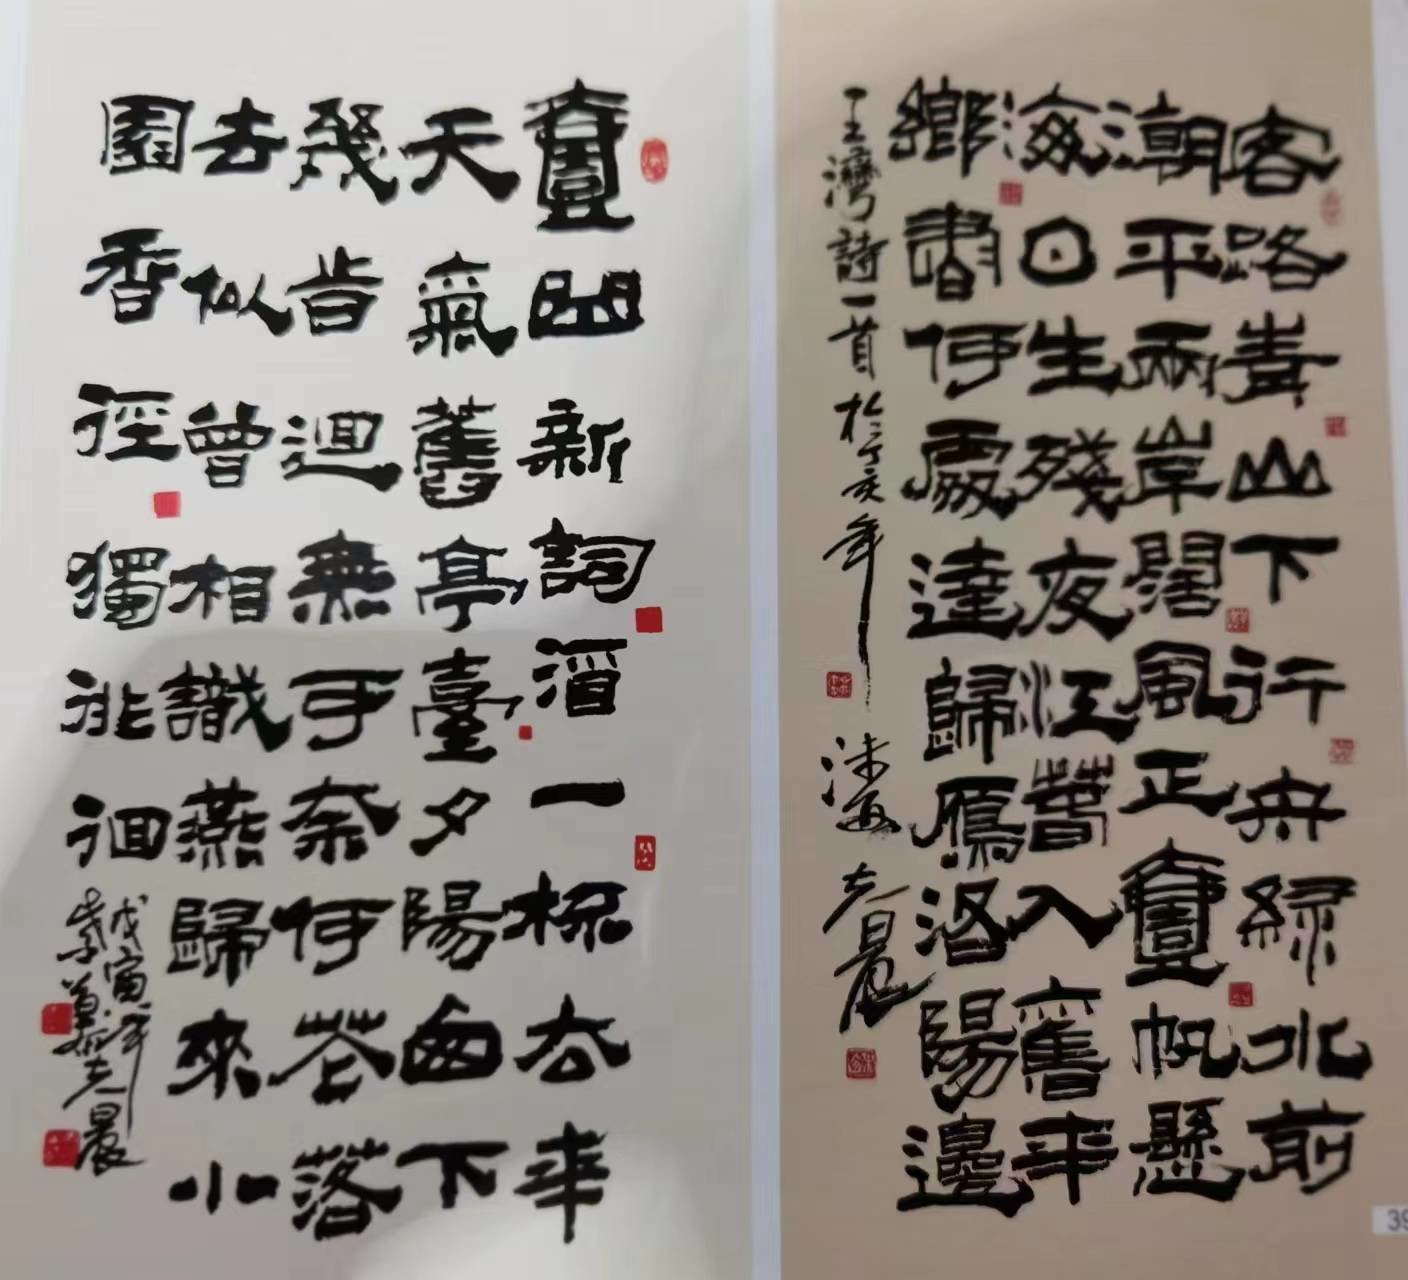 客路青山下行舟綠水前
潮平兩岸闊風正壹帆懸
海日生殘夜江春入舊年
鄉書何處達歸雁洛陽邊
王灣詩一首於丁亥年
壹曲新詞酒一杯去年
天氣舊亭臺夕陽西下
幾時迴無可奈何花落
去似曾相識燕歸來小
園香徑獨徘徊
戊寅年
39